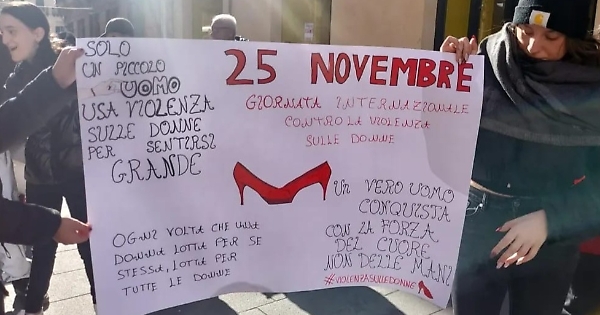 SOLO
UN PICCOLO
UOMO
USA VIOLENZA
SULLE DONNE
PER SENTIRSI
GRANDE
25 NOVEMBRE
GIORNATA INTERNAZIONALE
CONTRO LA VIOLENZA
SULLE DONNE
UN VERO UOMO
CONQUISTA
CON LA FORZA
DEL CUORE
NON DELLE MANI
#VIOLENZASULLEDONNE
OGNI VOLTA CHE UNA
DONNA LOTTA PER SE
STESSA, LOTTA PER
TUTTE LE DONNE